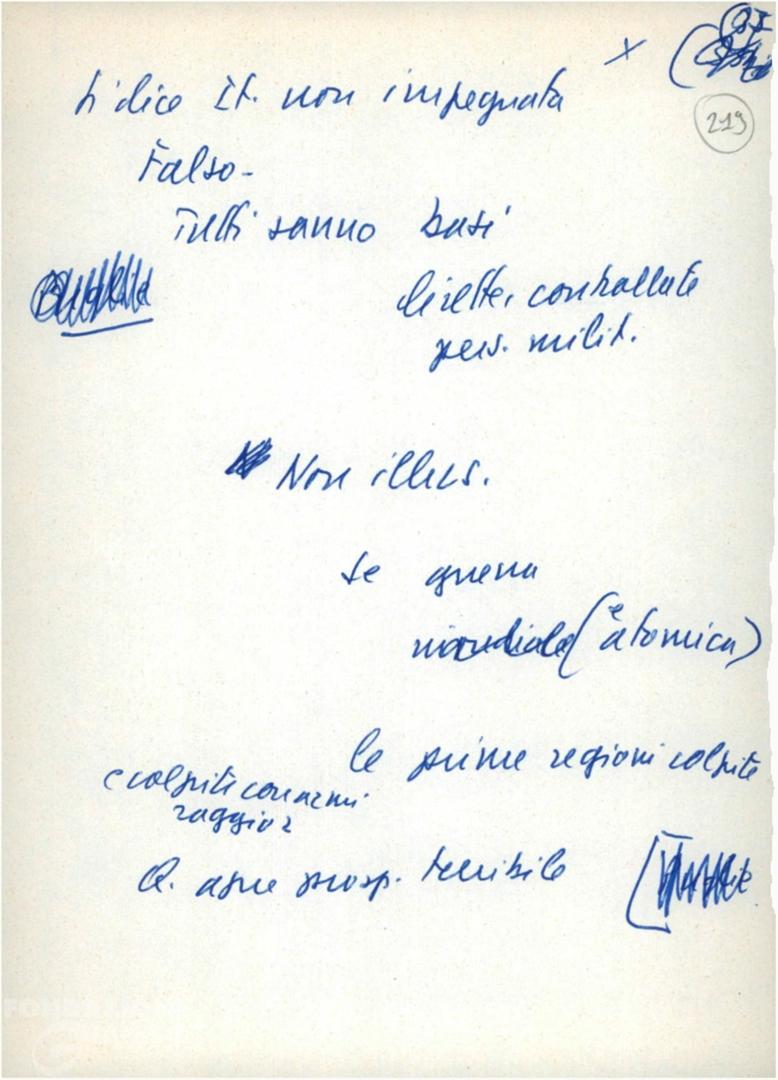 Si dice It. non impegnata
Falso-
Tutti sanno basi
dirette, controllate
pers. milit.
Non illus.
Se guerra
mondiale (e atomica)
le prime regioni colpite
e colpite con armi
Q. apre prosp. terribile
219